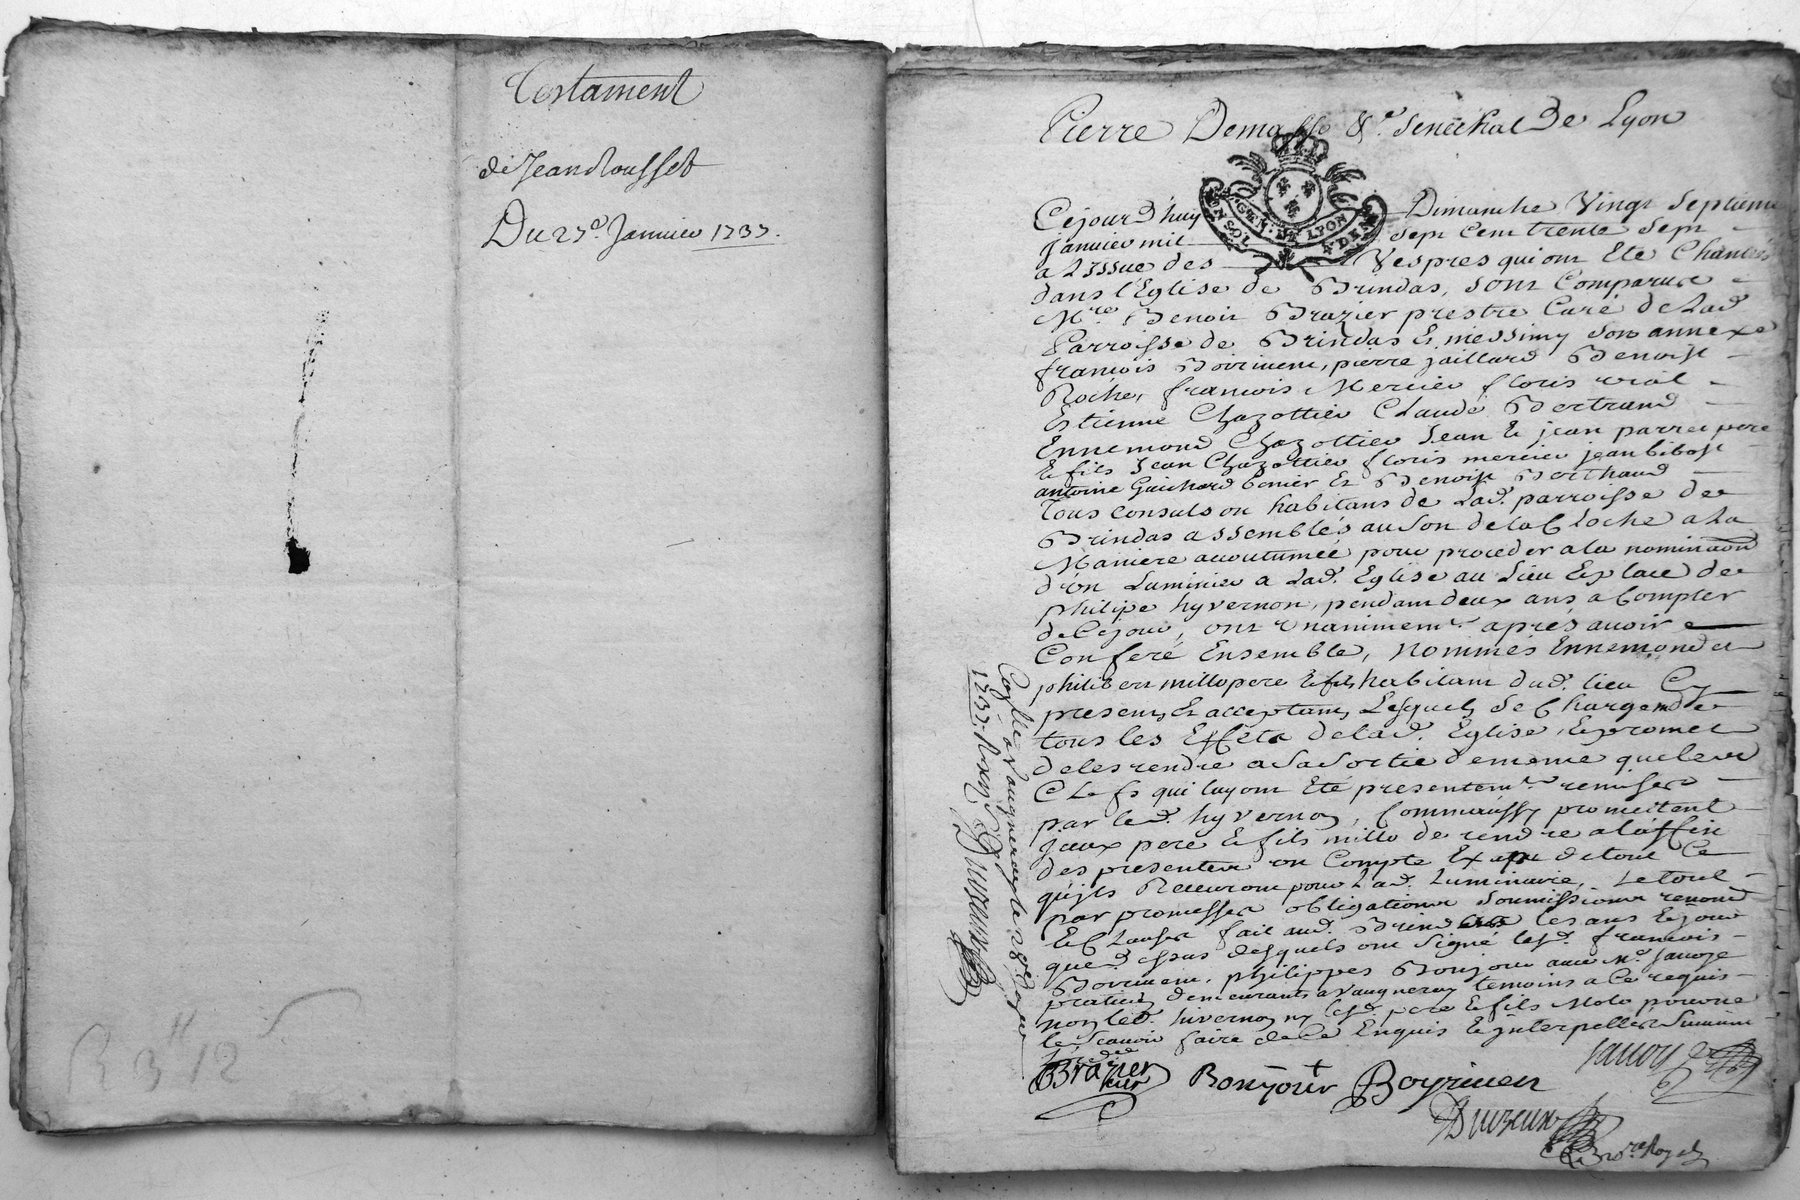 Testament
de Jean Rousset
Du 27e. Janvier 1737.
R 3 12
Pierre Demasso &c. Senechal De Lyon
GEN. DE LYON
Cejourd'huy Dimanche Vingt Septieme
Janvier mil sept cent trente sept
a L'issue des Vespres qui ont Ete Chantées
dans l'Eglise de Brindas, sont Comparus
Mre. Benoit Brazier prestre Curé de Lad.
Parroisse de Brindas & messimy son annexe
francois Boiriven, pierre jaillard Benoist
Roche, francois Mercier floris vial
Estienne Chazottier Claude Bertrand
Ennemond Chazottier Jean & jean parret pere
& fils Jean Chazottier floris mercier jean bibost
antoine Guichard & Benoist Berthaud
Tous consuls ou habitans de Lad. parroisse de
Brindas assemblés au Son de la Cloche a La
Maniere accoutumée pour proceder a la nomination
d'un Luminier a Lad. Eglise au Lieu & place de
philipe hyvernon, pendant deux ans a Compter
de Cejour, ont Unanimemt. aprés avoir
Conferé Ensemble, Nommés Ennemond et
philibert millo pere & fils habitant dud. lieu Cy
presents & acceptants, Lesquels se Chargent de
tous les Effets de lad. Eglise, & promet
de les rendre a la Sortie de meme que les
Clefs qui luy ont Eté presentemt. remises
par led. hyvernon, Comm'aussy promettent
jceux pere & fils millo de rendre a la ffin
des presentes un Compte Exact de tout Ce
qu'jls Recevront pour Lad. Luminaire, Le tout
par promesses obligations Soumissions renond
& Clauses fait aud. Brindas les ans & jour
que dessus desquels ont signé lesd. francois
Boiriven, philippes Bonjour avec Me. Sauvoye
praticien demeurants a Vaugneray temoins a ce requis
non led. hivernon ny lesd. pere & fils Molo pour ne
le Scavoir faire de Ce Enquis & jnterpellés Suivant
Brazier
curé
Bonjour Boyriven
Duvzeux
No.re Royal
Controllé a Vaugneray le 28e Janvier
1737. Recu